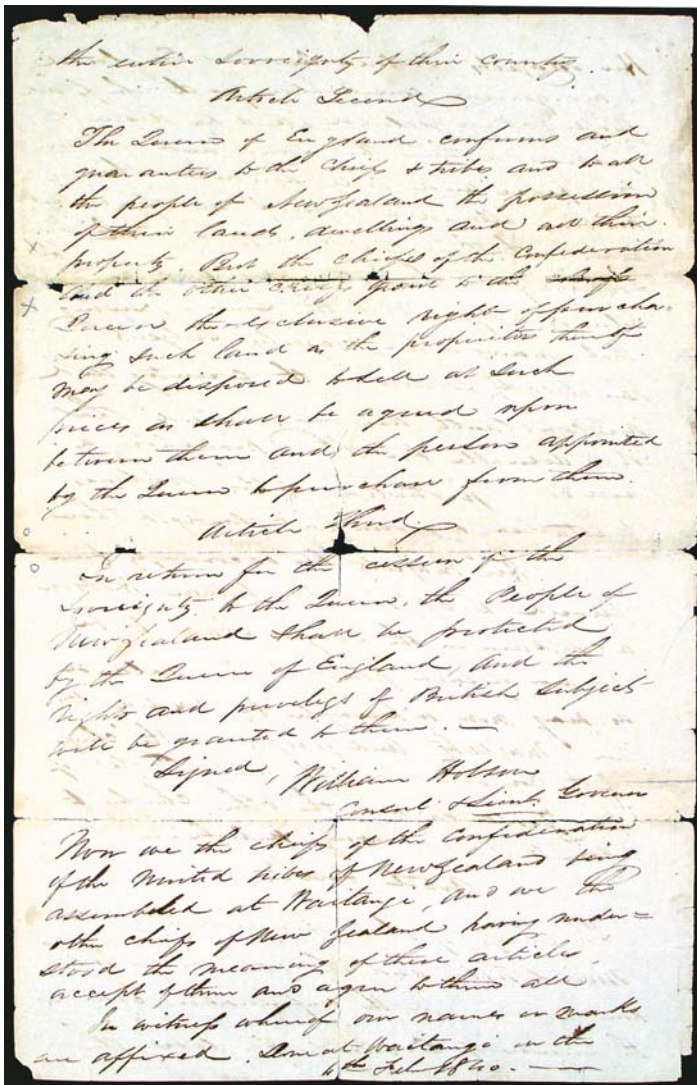 the entire sovreignty of their country.
Article Second
The Queen of England confirms and
guarantees to the chiefs & tribes and to all
the people of New Zealand the possession
of their lands, dwellings and all their
property. But the chiefs of the Confederation
and the other chiefs grant to the
Queen the exclusive right of purcha-
sing such land as the proprietors thereof
may be disposed to sell at such
prices as shall be agreed upon
between them and the person appointed
by the Queen to purchase from them.
Article Third
In return for the cession of the
Sovreignty to the Queen, the People of
New Zealand shall be protected
by the Queen of England and the
rights and privileges of British subjects
will be granted to them. —
Signed, William Hobson
Consul & Lieut. Governor
Now we the chiefs of the Confederation
of the United tribes of New Zealand being
assembled at Waitangi, and we the
other chiefs of New Zealand having under=
stood the meaning of these articles,
accept of them and agree to them all
In witness whereof our names or marks
are affixed. Done at Waitangi on the
4th Feb. 1840. —